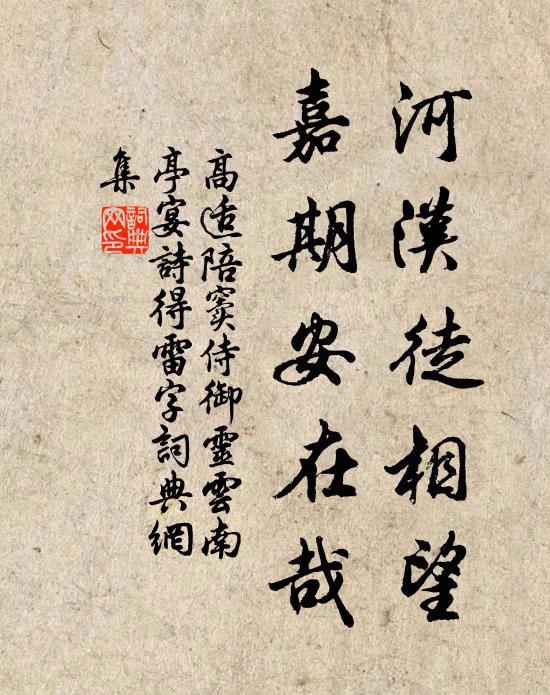 河漢徒相望
嘉期安在哉
高适陪竇侍御靈雲南
亭宴詩得雷字詞典網
集
詞典網印